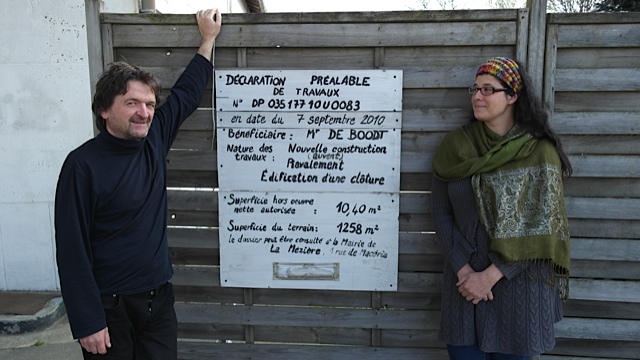 DÉCLARATION PRÉALABLE
DE TRAVAUX
N° DP 035 177 10U0083
en date du 7 septembre 2010
Bénéficiaire: Mr DE BOODT
Nature des travaux: Nouvelle construction
(auvent)
Ravalement
Édification d'une clôture
Superficie hors oeuvre
nette autorisée: 10,40 m²
Superficie du terrain: 1258 m²
le dossier peut être consulté à la Mairie de
La Mézière, 1 rue de Macéria